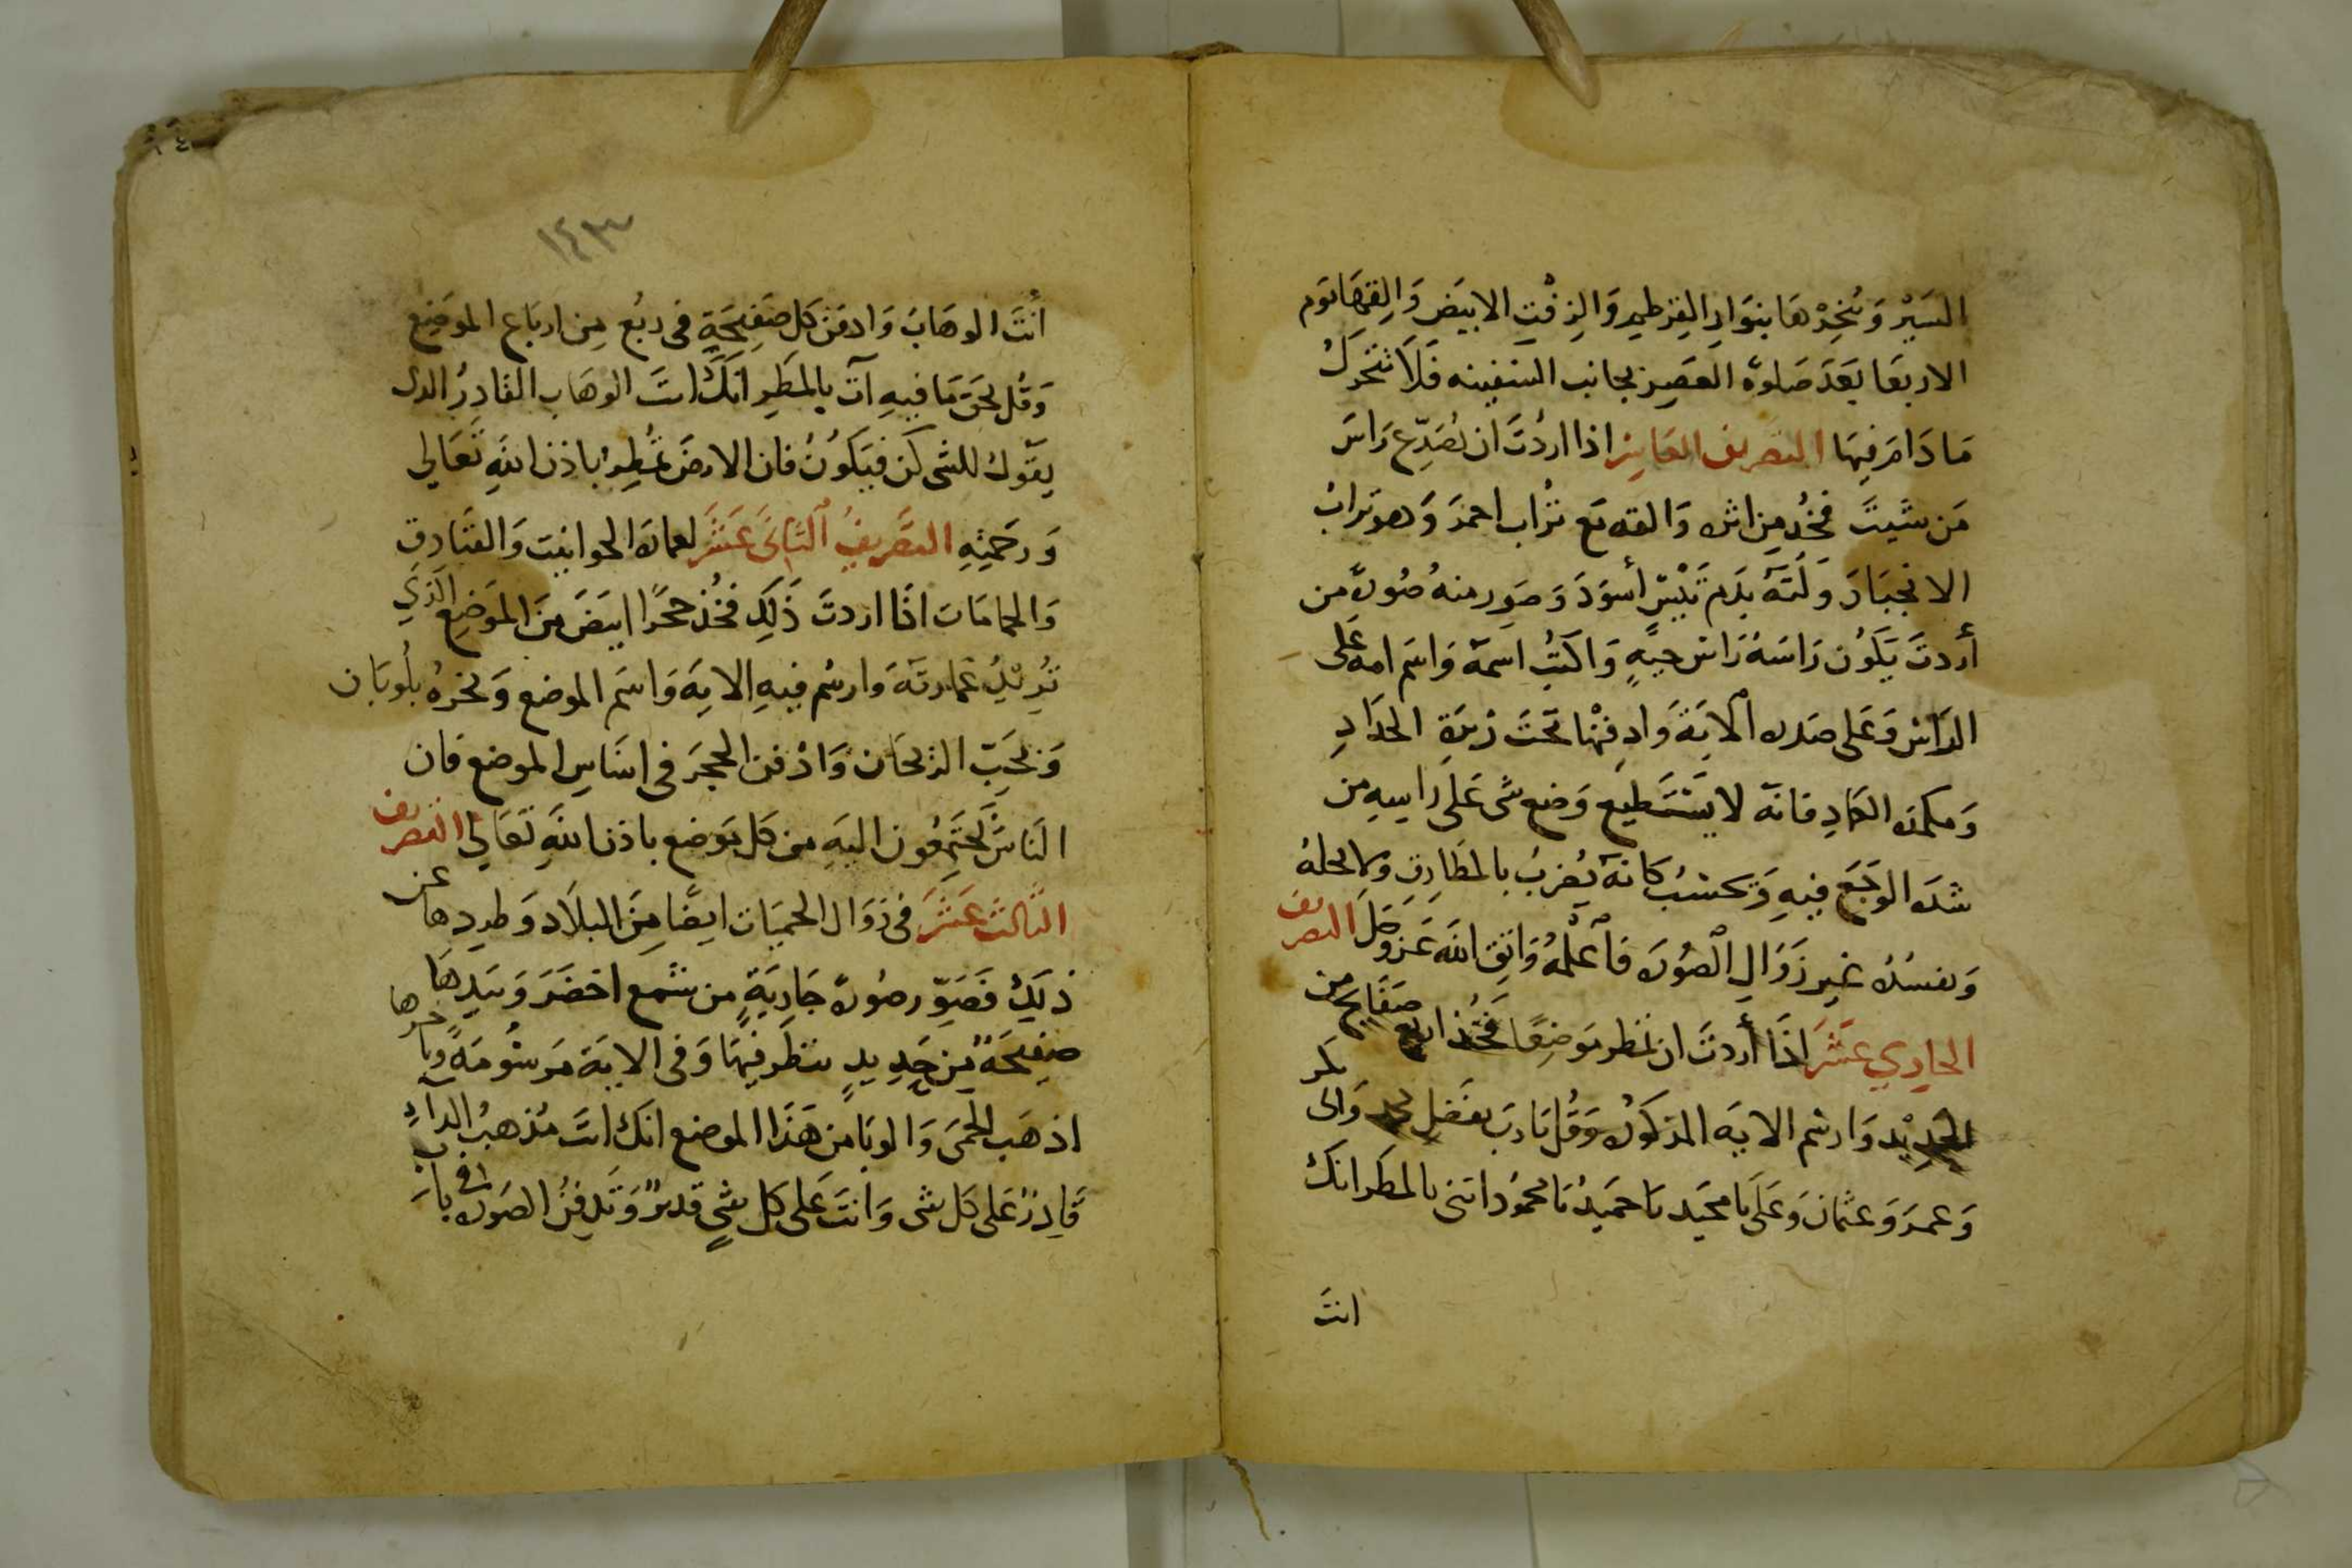 السير وبخرها بنوار القرطم والزفت الابيض
الاربعا بعد صلوة العصر بجانب السفينه فلا تتحرك
ما دام فيها التصريف العاشر اذا اردت ان تصدع راس
من شيت فخذ من اثره والقه مع تراب احمر وهو تراب
الانجبار ولته بدم تيس أسود وصور منه صورة من
أردت يكون راسه راس حية واكتب اسمه واسم امه على
الراس وعلى صدره الاية وادفنها تحت زبرة الحداد
فانه لا يستطيع وضع شى على راسه من
شدة الوجع فيه ويحسب كانه يضرب بالمطارق ولا يحله
غير زوال الصورة فأعلمه واتق الله عز وجل التصريف
الحادي عشر اذا أردت ان تمطر موضعا فخذ اربع صفايح من
الحديد وارسم الاية المذكورة وقل يارب بفضل محمد وابى بكر
وعمر وعثمان وعلى يا مجيد يا حميد يا محمود اتنى بالمطر انك
انت
١٤٣
أنت الوهاب وادفن كل صفيحة فى ربع من ارباع الموضع
وقل بحق ما فيه آت بالمطر انك انت الوهاب القادر الذى
يقول للشى كن فيكون فان الارض تمطر باذن الله تعالى
ورحمته التصريف الثانى عشر لعمارة الحوانيت والفنادق
والحمامات اذا اردت ذلك فخذ حجرا ابيض من الموضع الذي
تريد عمارته وارسم فيه الاية واسم الموضع وبخره بلوبان
وبحب الريحان وادفن الحجر فى اساس الموضع فان
الناس يجتمعون اليه من كل موضع باذن الله تعالى التصريف
الثالث عشر فى زوال الحميات ايضا من البلاد وطردها عن
ذلك فصور صورة جارية من شمع اخضر وبيدها
صفيحة من حديد تنظر فيها وفى الاية مرسومة
اذهب الحمى والوبا من هذا الموضع انك انت مذهب الداء
قادر على كل شى وانت على كل شي قدير وتدفن الصورة فى باب